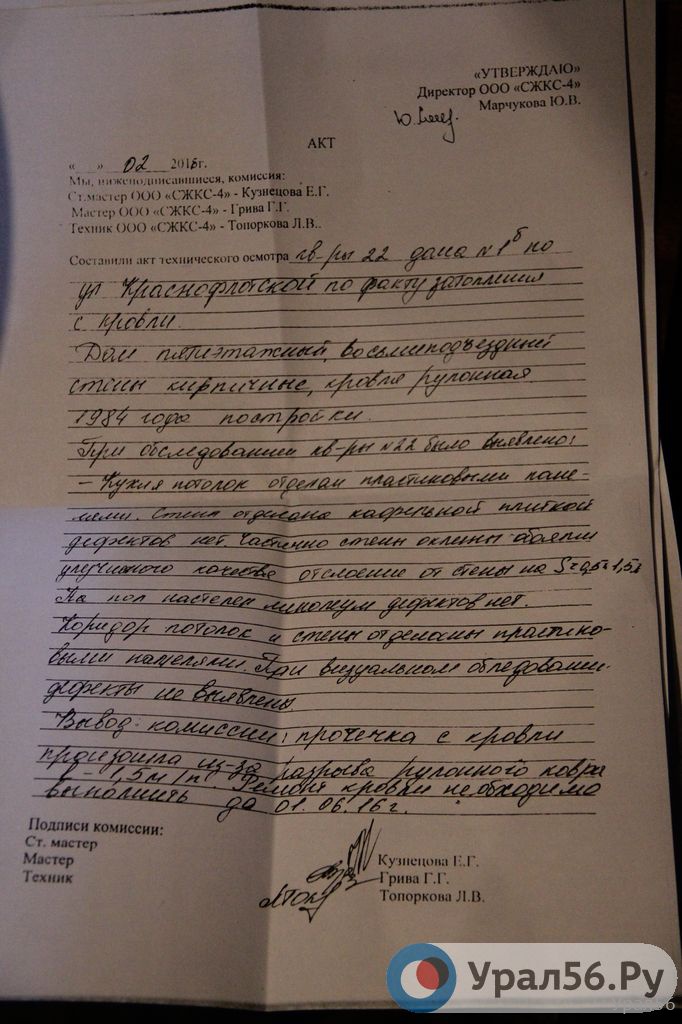 «УТВЕРЖДАЮ»
Директор ООО «СЖКС-4»
Марчукова Ю.В.
АКТ
«__» 02 2016г.
Мы, нижеподписавшиеся, комиссия:
Ст.мастер ООО «СЖКС-4» - Кузнецова Е.Г.
Мастер ООО «СЖКС-4» - Грива Г.Г.
Техник ООО «СЖКС-4» - Топоркова Л.В..
Составили акт технического осмотра кв-ры 22 дома №1б по
ул Краснофлотской по факту затопления
с кровли.
Дом пятиэтажный, восьмиподъездный
стены кирпичные, кровля рулонная
1984 года постройки.
При обследовании кв-ры №22 было выявлено:
– Кухня потолок отделан пластиковыми пане-
лями. Стена отделана кафельной плиткой
дефектов нет. Частично стены оклеены обоями
улучшенного качества отслоение от стены на S=0,5х1,5м
На пол настелен линолеум дефектов нет.
Коридор потолок и стены отделаны пластико-
выми панелями. При визуальном обследовании
дефекты не выявлены
Вывод комиссии: протечка с кровли
произошла из-за разрыва рулонного ковра
– 1,5м/п. Ремонт кровли необходимо
выполнить до 01.06.16г.
Подписи комиссии:
Ст. мастер
Мастер
Техник
Кузнецова Е.Г.
Грива Г.Г.
Топоркова Л.В.
Урал56.Ру